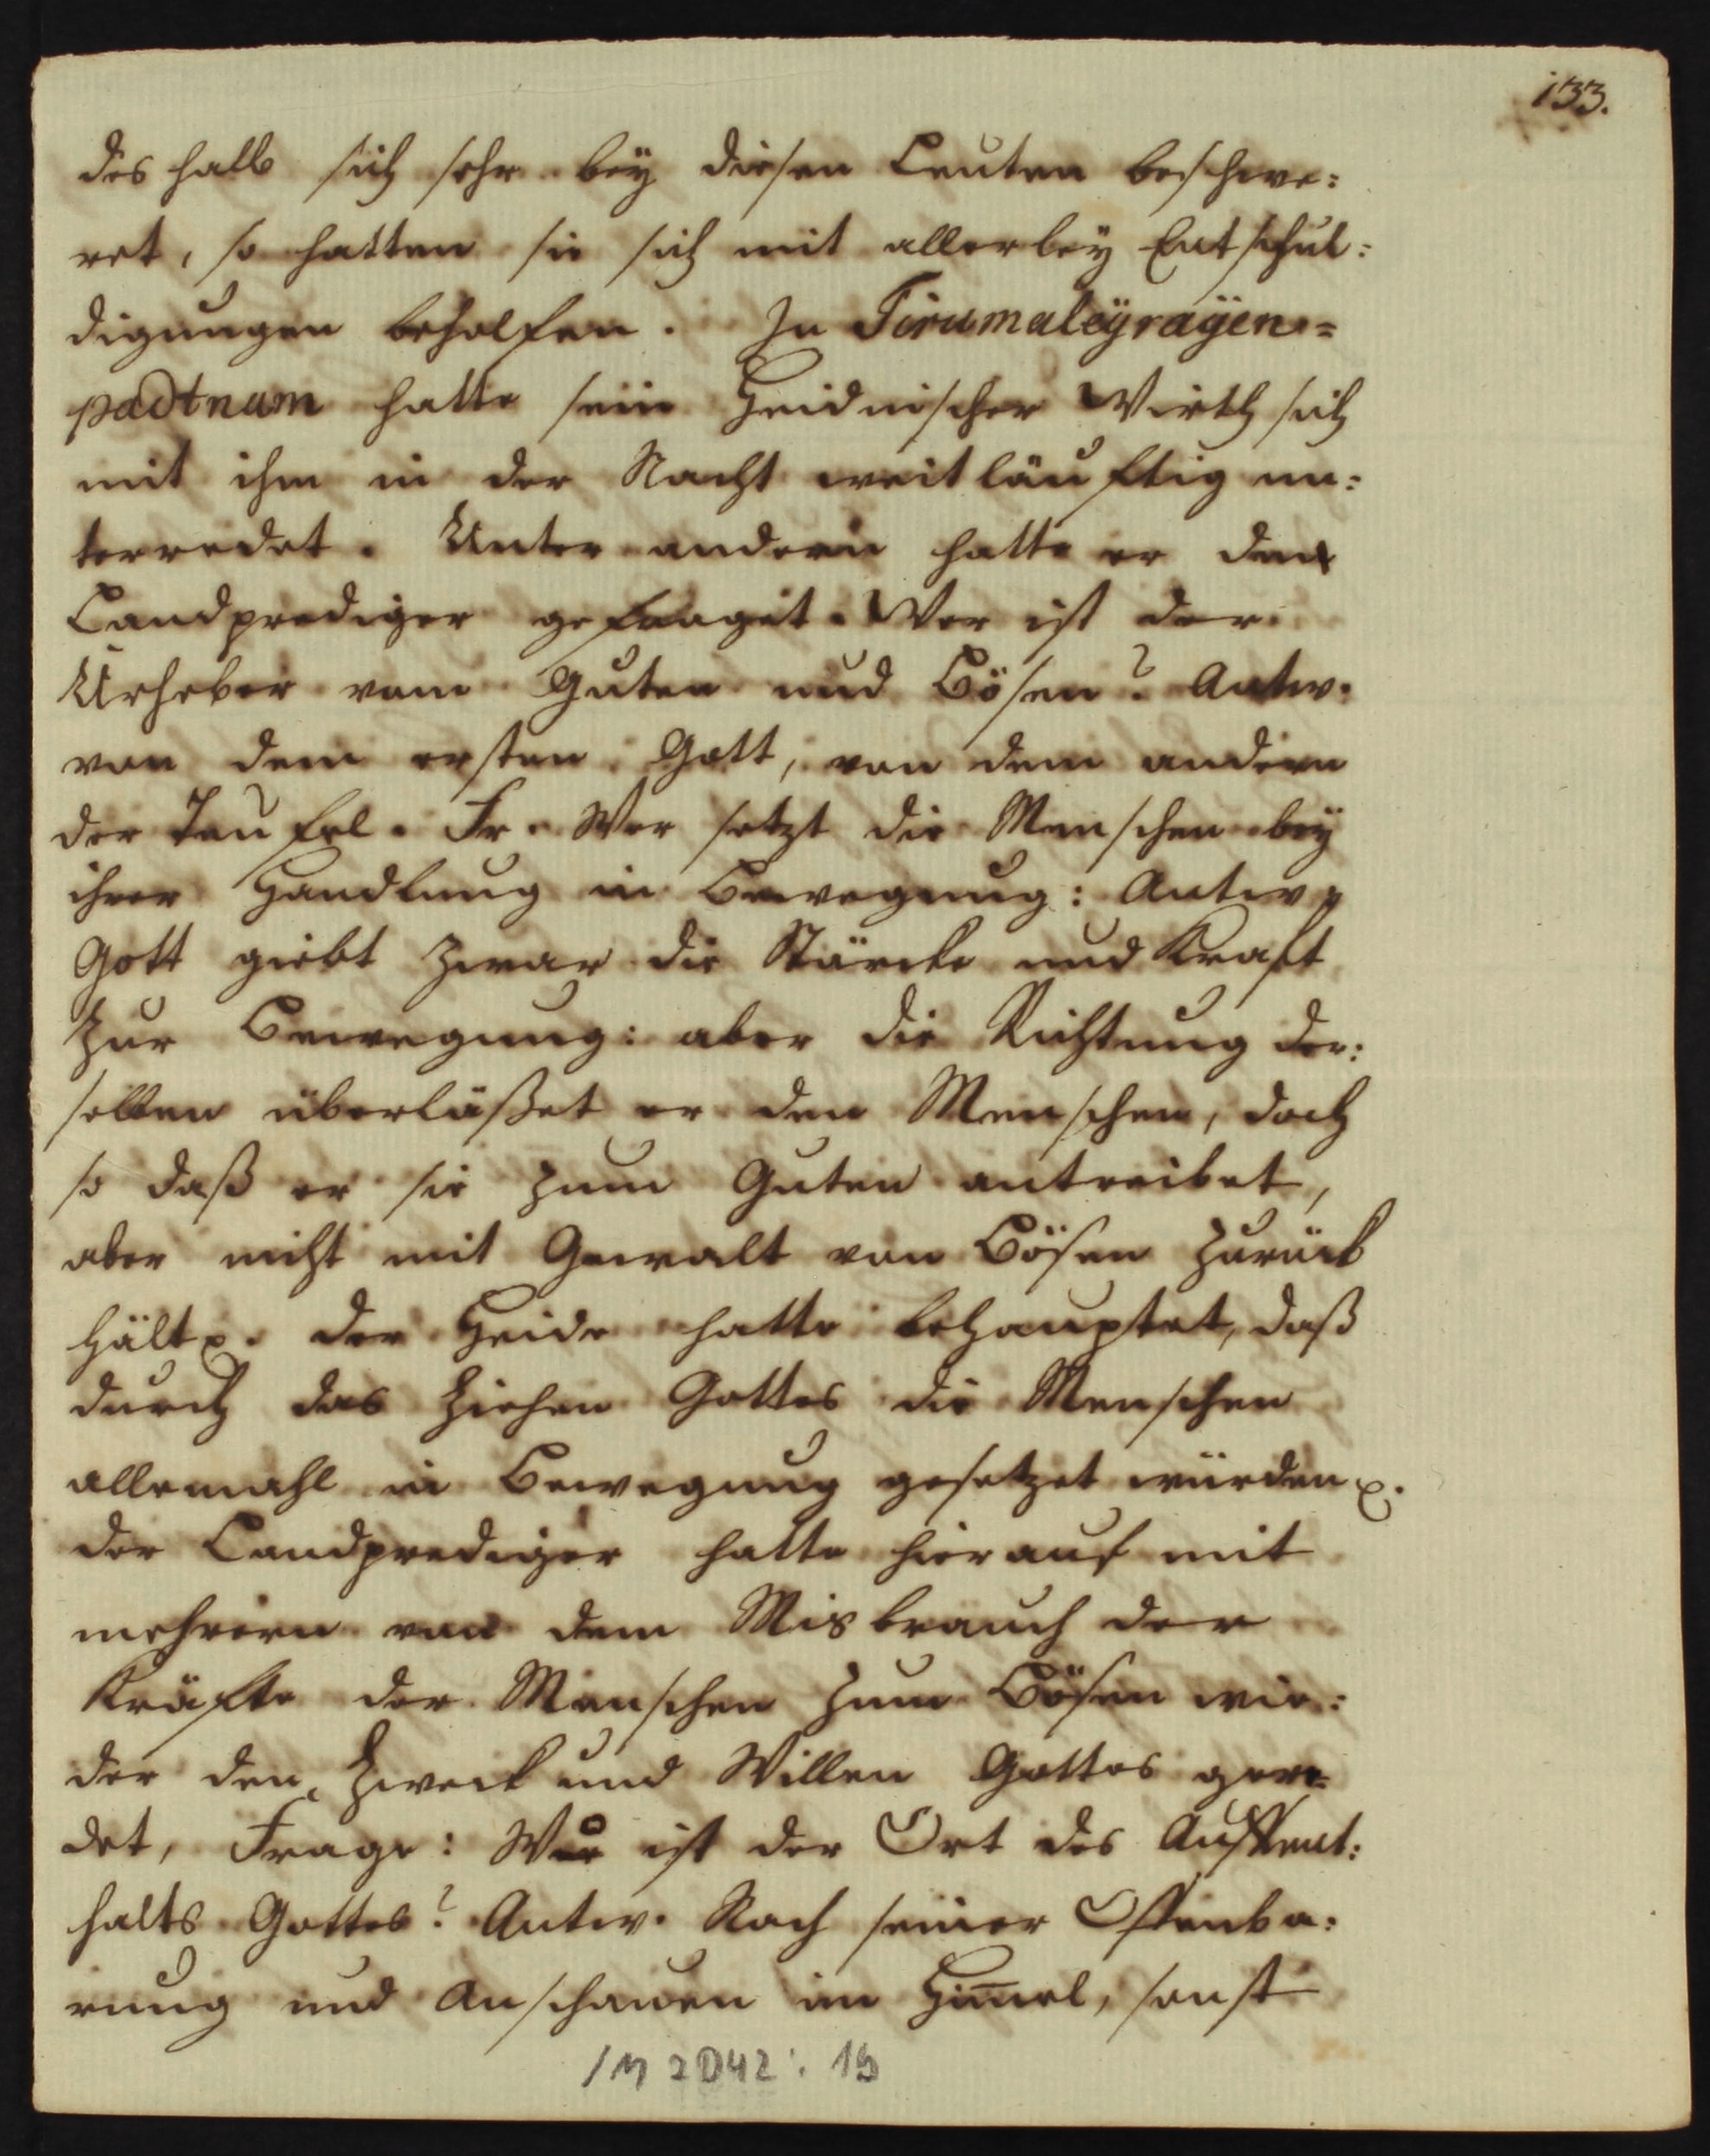 133.
des halb sich sehr bey diesen Leuten beschwe:
ret, so hatten sie sich mit allerley Entschul:
digungen beholfen. In Tirumaleÿrayen=
padtnam hatte sein Heidnischer Wirth sich
mit ihm in der Nacht weitläuftig un:
terredet. Unter andern hatte er den
Landprediger gefraget. Wer ist der
Urheber vom Guten und Bösen? Antw.
von dem ersten Gott, von dem andern
der Teufel. Fr. Wer setzt die Menschen bey
ihrer Handlung in Bewegung: Antw.
Gott giebt zwar die Stärcke und Kraft
zur Bewegung: aber die Richtung der:
selben überläßet er den Menschen, doch
so daß er sie zum Guten antreibet,
aber nicht mit Gewalt von Bösen zurück
hält ꝛc. der Heide hatte behauptet, daß
durch das Ziehen Gottes die Menschen
allemahl in Bewegung gesetzet würden ꝛc.
der Landprediger hatte hierauf mit
mehrern von dem Misbrauch der
Kräfte der Menschen zum Bösen wie:
der den Zweck und Willen Gottes gere=
det, Frage: Wo ist der Ort des Auffent:
halts Gottes? Antw. Nach seiner Offenba:
rung und Anschauen im Him̅el, sonst
/M 2D42: 15